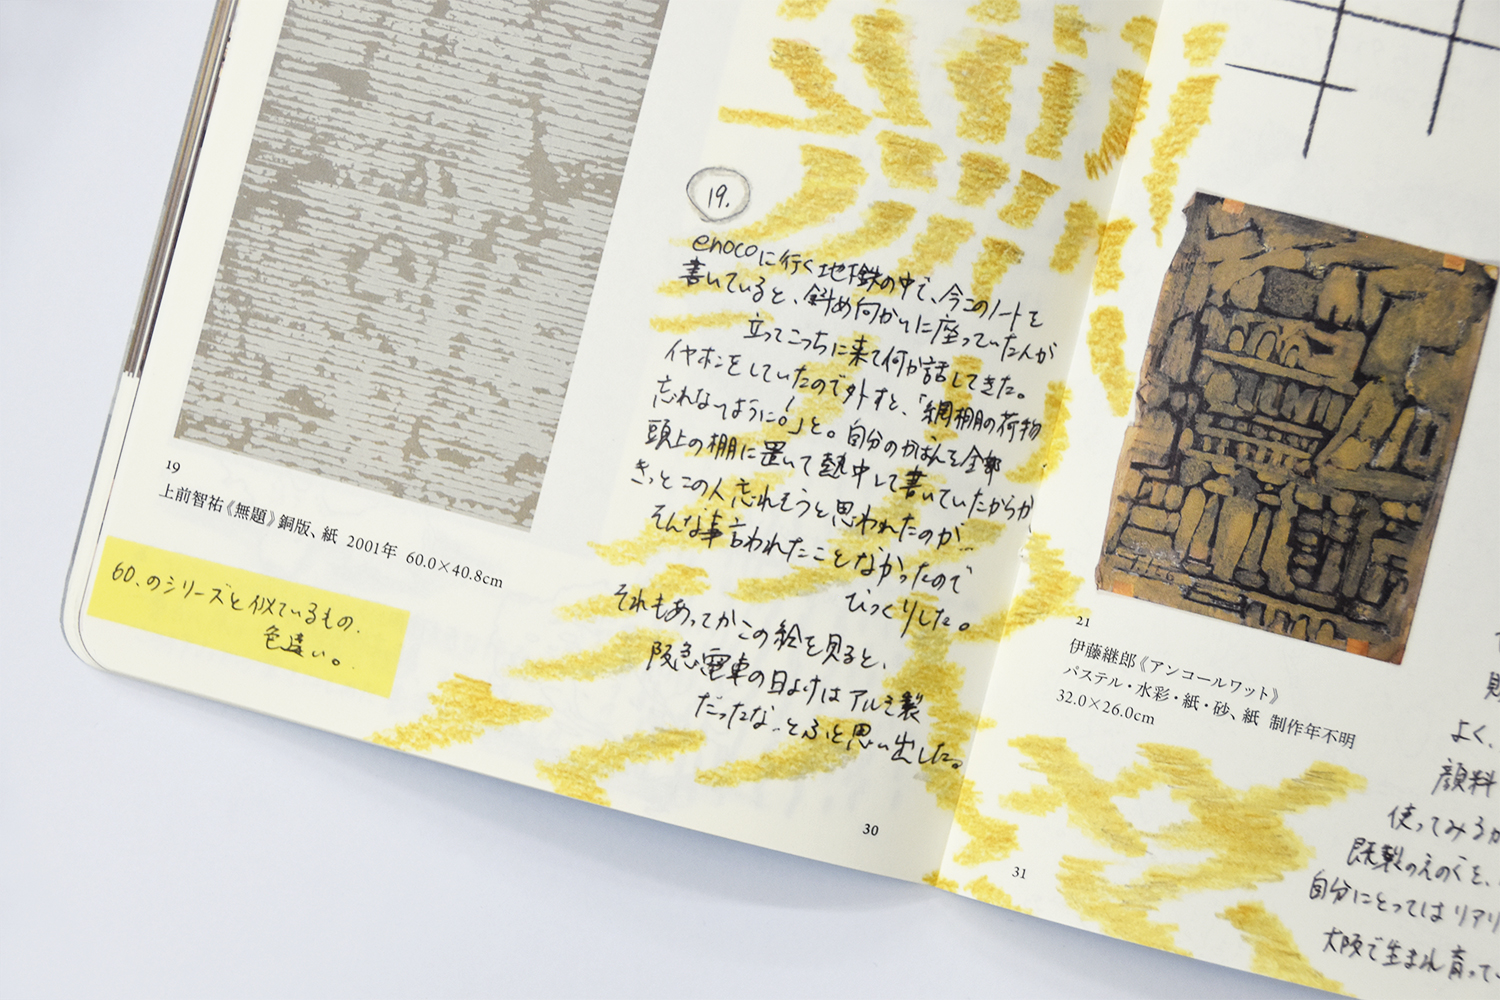 19
上前智祐《無題》銅版、紙 2001年 60.0×40.8cm
60.のシリーズと似ているもの.
色違い。
19.
enocoに行く地下鉄の中で、今このノートを
書いていると、斜め向かいに座っていた人が
立ってこっちに来て何か話してきた。
イヤホンをしていたので外すと、「網棚の荷物
忘れなってように!」と。自分のかばんを全部
頭上の棚に置いて熱中して書いていたからか
きっとこの人忘れそうと思われたのが
そんな事言われたことなかったので
びっくりした。
それもあってかこの絵を見ると、
阪急電車の日よけはアルミ製
だったな、とふと思い出した。
30
21
伊藤継郎《アンコールワット》
パステル・水彩・紙・砂、紙 制作年不明
32.0×26.0cm
31
よく、
顔料
使ってみるか
既製のえのぐを、
自分にとってはリアリ
大阪で生まれ育ってい